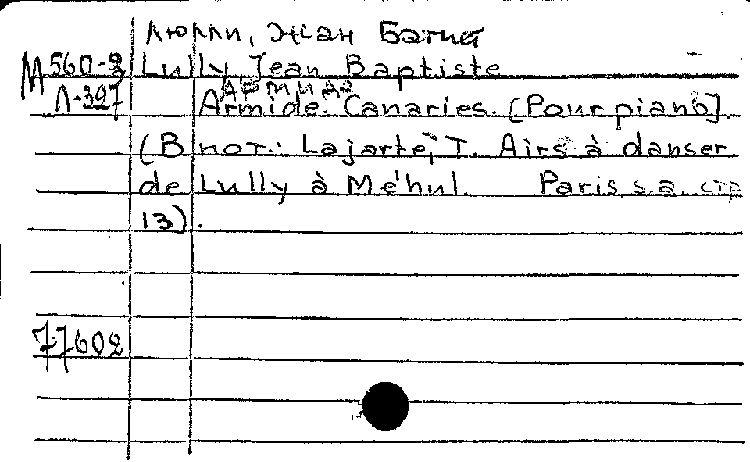 Люлли, Жан Батист
М 560-2 Lully Jean Baptiste
Армида
Л-397 Armide. Canaries. [Pour piano].
(В нот.: Lajarte, T. Airs à danser
de Lully à Méhul. Paris, s.a. стр
13).
77602